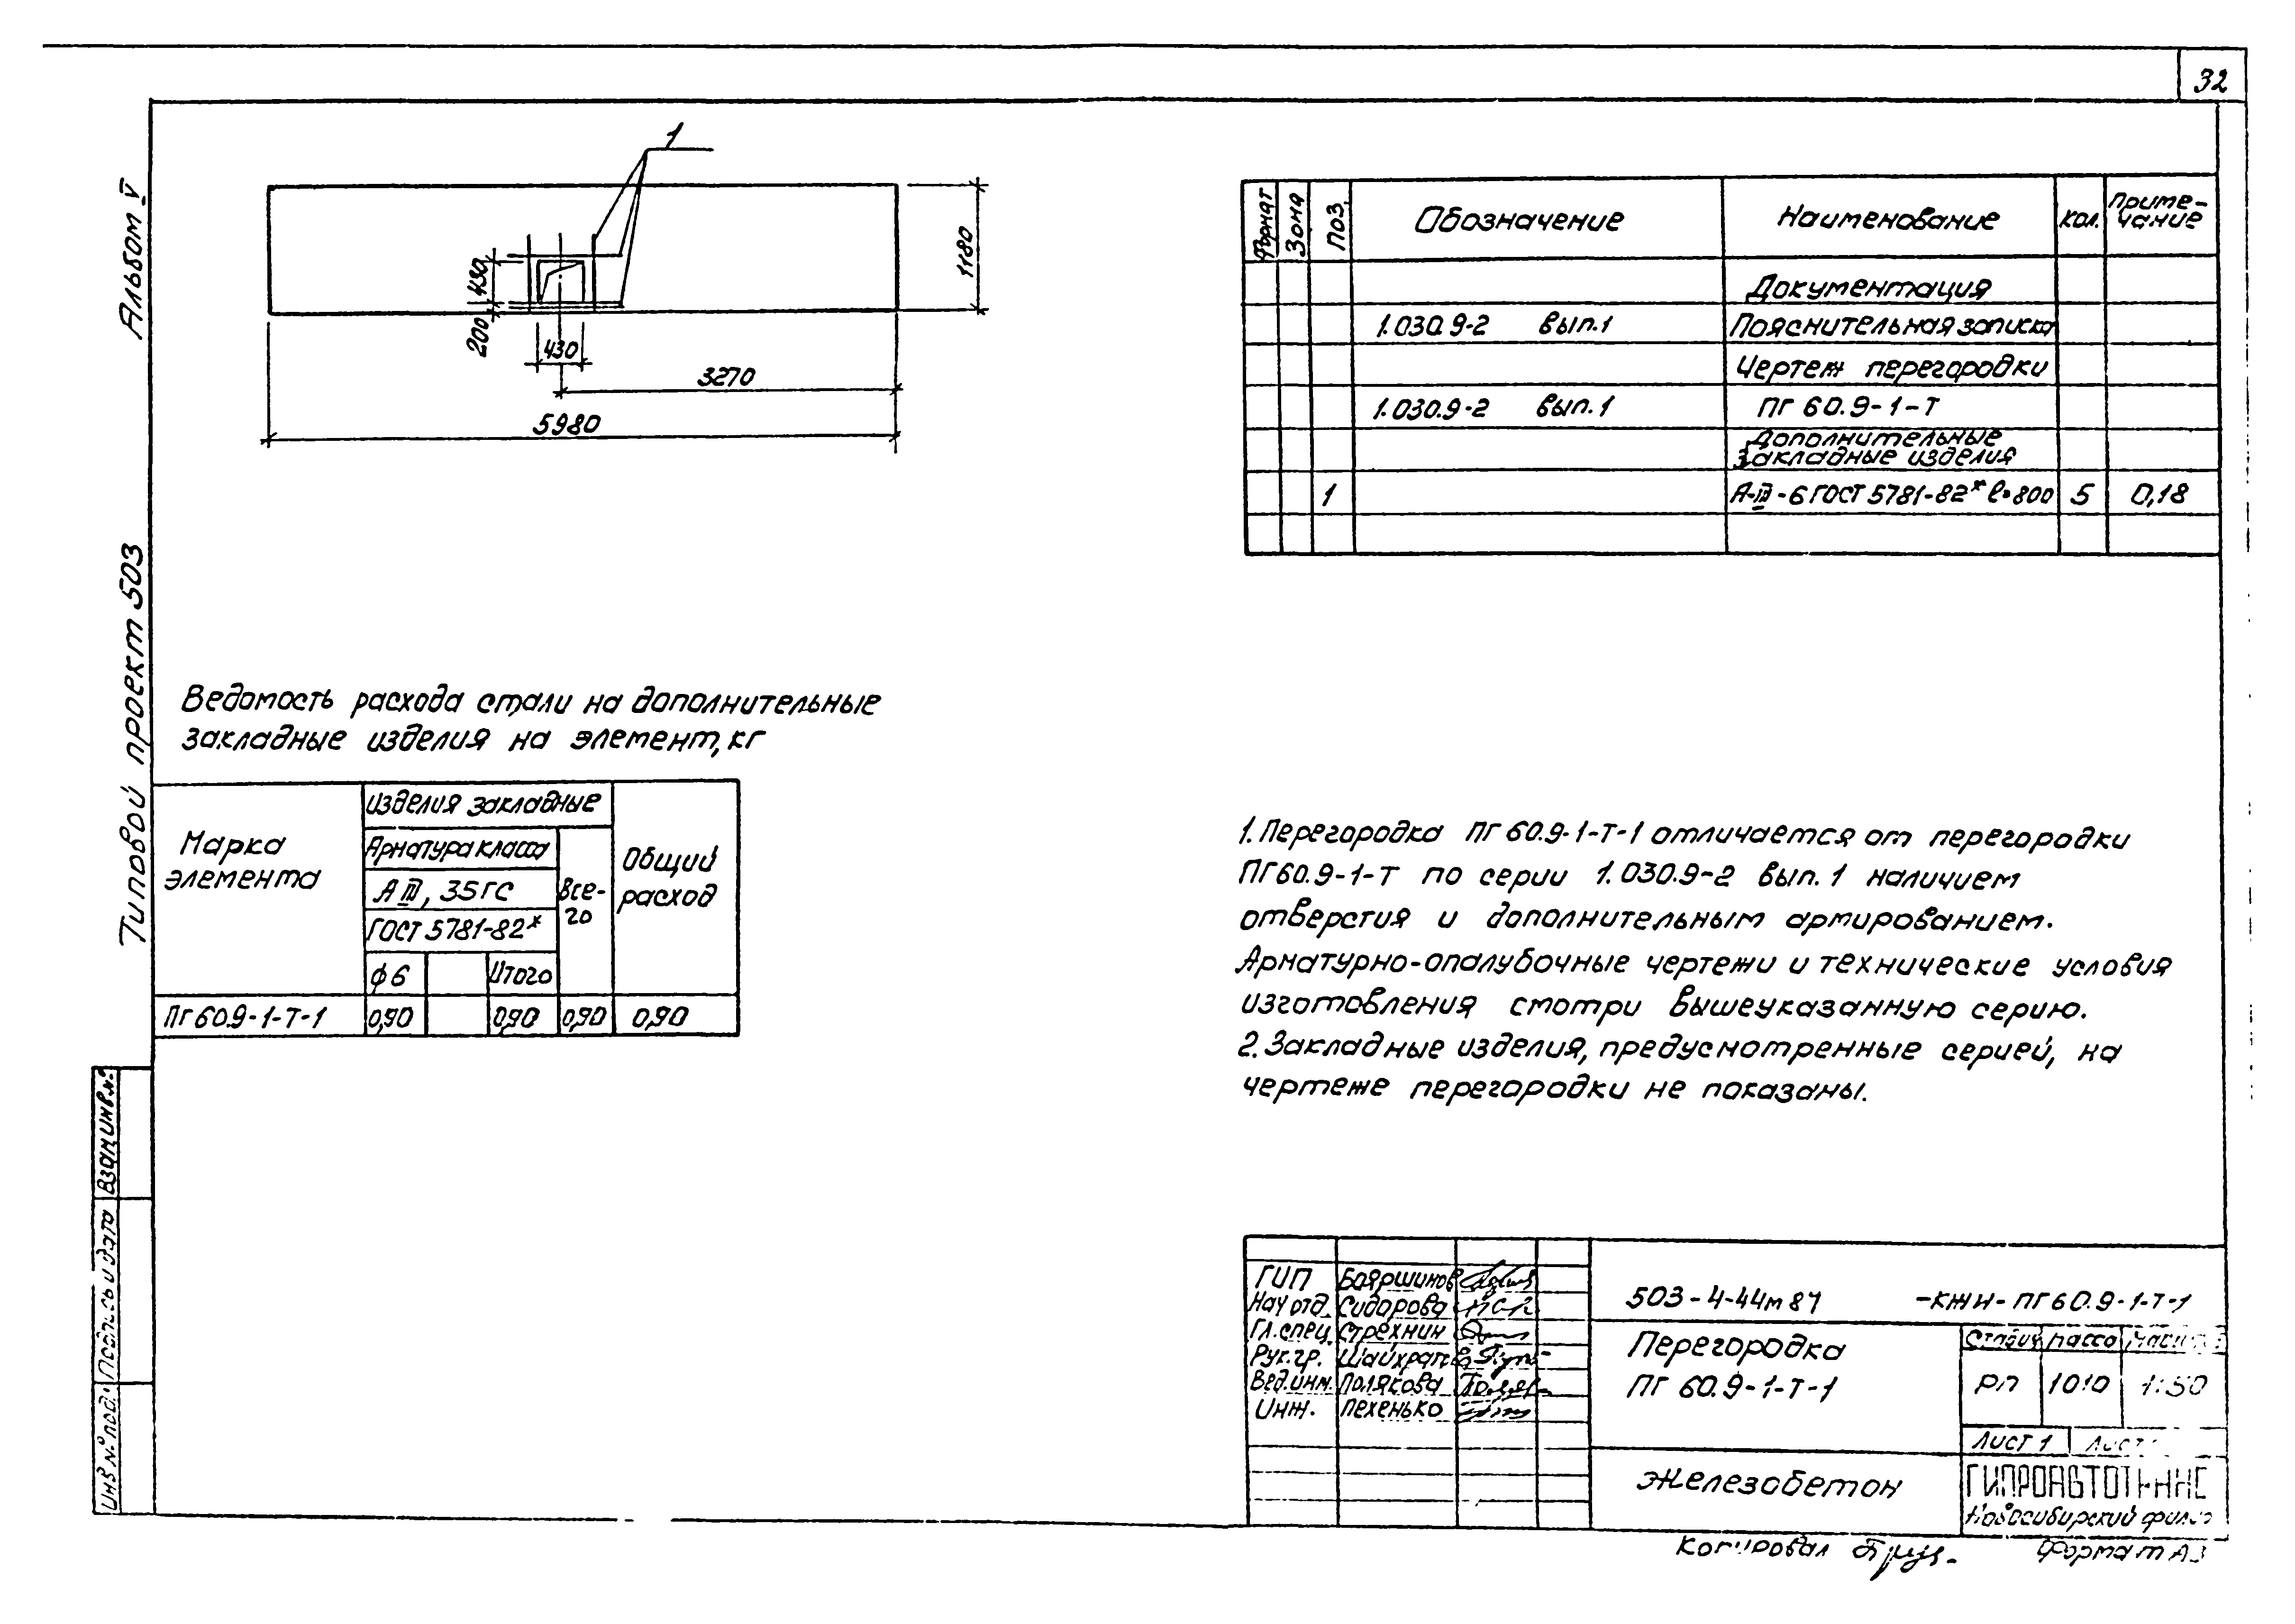 32
Альбом V
Типовой проект 503
1
430
200
430
1180
3270
5980
Формат Зона Поз. Обозначение Наименование Кол. Приме-
чание
Документация
1.030.9-2 вып.1 Пояснительная записка
Чертеж перегородки
1.030.9-2 вып.1 ПГ 60.9-1-Т
Дополнительные
закладные изделия
1 А-III-6 ГОСТ 5781-82* l=800 5 0,18
Ведомость расхода стали на дополнительные
закладные изделия на элемент, кг
Марка
элемента
Изделия закладные
Арматура класса
А III, 35ГС
ГОСТ 5781-82*
ф6 Итого
Все-
го
Общий
расход
ПГ 60.9-1-Т-1 0,90 0,90 0,90 0,90
1. Перегородка ПГ 60.9-1-Т-1 отличается от перегородки
ПГ60.9-1-Т по серии 1.030.9-2 вып.1 наличием
отверстия и дополнительным армированием.
Арматурно-опалубочные чертежи и технические условия
изготовления смотри вышеуказанную серию.
2. Закладные изделия, предусмотренные серией, на
чертеже перегородки не показаны.
Взам.инв.№
Подпись и дата
Инв № подл.
ГИП Бояршинов
Нач отд. Сидорова
Гл.спец. Стрехнин
Рук.гр.
Вед.инж. Полякова
Инж. Пехенько
503-4-44м87 -КЖИ-ПГ60.9-1-Т-1
Перегородка
ПГ 60.9-1-Т-1
Стадия Масса
РП 1010 1:50
Лист 1
Железобетон
ГИПРОАВТОТРАНС
Новосибирский филиал
Копировал
Формат А3